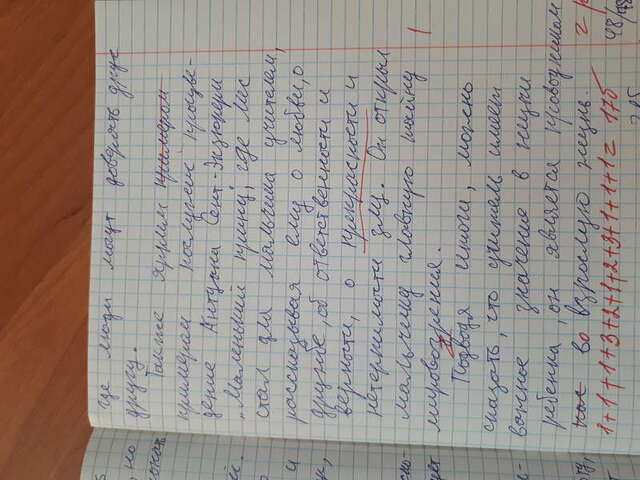 где люди могут доверять друг
другу.
Также ярким примером
примером послужит произве-
дение Антуана Сент-Экзюпери
„Маленький принц", где Лис
стал для мальчика учителем,
рассказывая ему о любви, о
дружбе, об ответственности и
верности, о прекрасности и
нетерпимости злу. Он открыл
мальчику главную истину
мировоззрения.
Подводя итоги, можно
сказать, что учитель имеет
важное значение в жизни
ребенка, он является проводником
во взрослую жизнь.
1+1+1+3+2+1+2+3+1+1+1= 17б